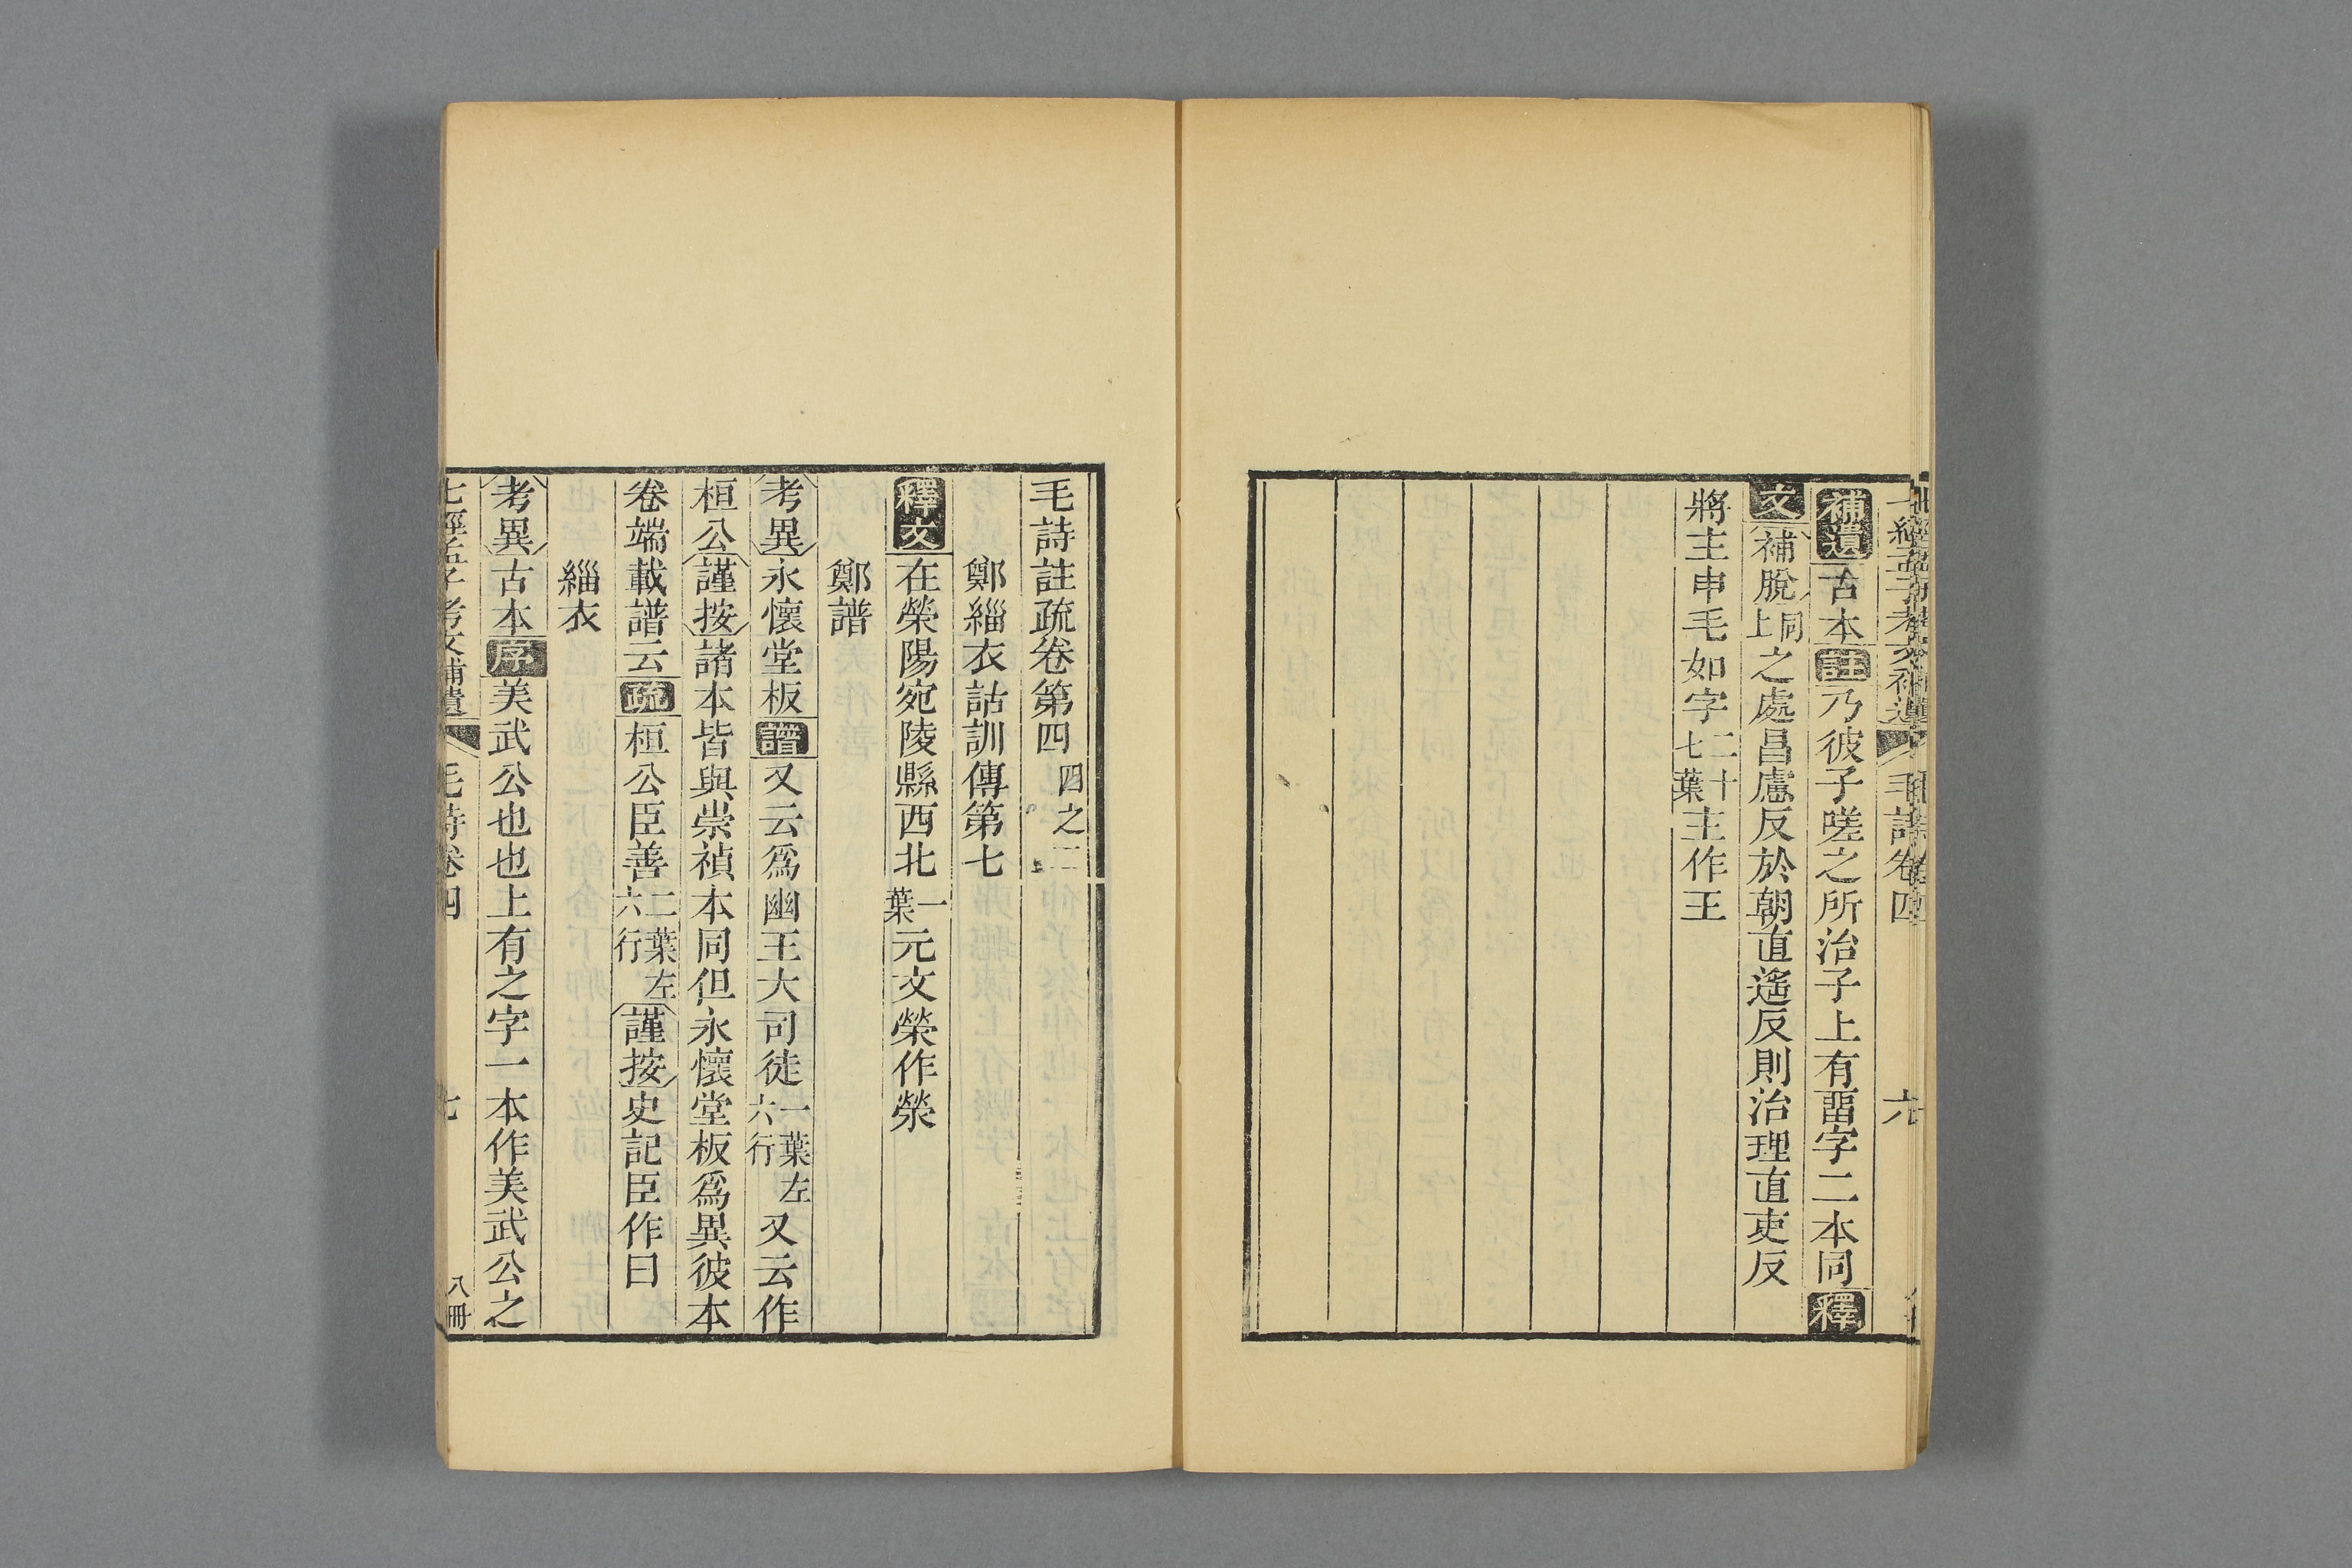 七經孟子考文補遺 毛詩卷四 六
補遺古本註乃彼子嗟之所治子上有畱字二本同釋
文補脫同上之處昌慮反於朝直遙反則治理直吏反
將主申毛如字二十七葉主作王
毛詩註疏卷第四四之二
鄭緇衣詁訓傳第七
釋文在滎陽宛陵縣西北一葉元文榮作滎
鄭譜
考異永懷堂板譜又云爲幽王大司徒一葉左六行又云作
桓公謹按諸本皆與崇禎本同但永懷堂板爲異彼本
卷端載譜云疏桓公臣善二葉左六行謹按史記臣作曰
緇衣
考異古本序美武公也也上有之字一本作美武公之
七經孟子考文補遺 毛詩卷四 七 八冊